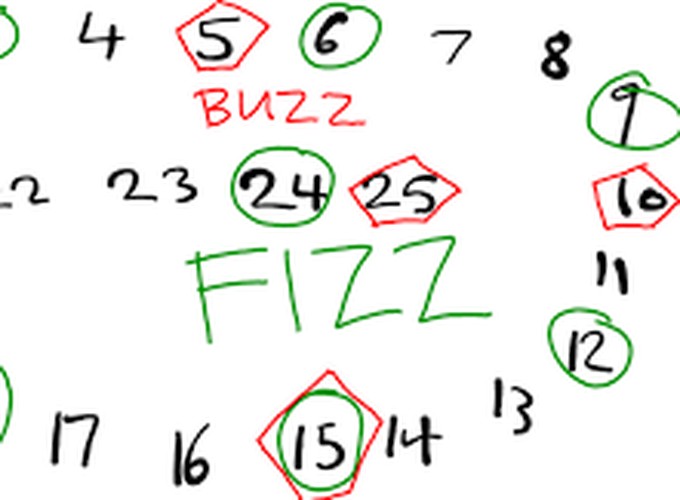 4 5 6 7 8
9
BUZZ
22 23 24 25 10
FIZZ
11
12
17 16 15 14 13